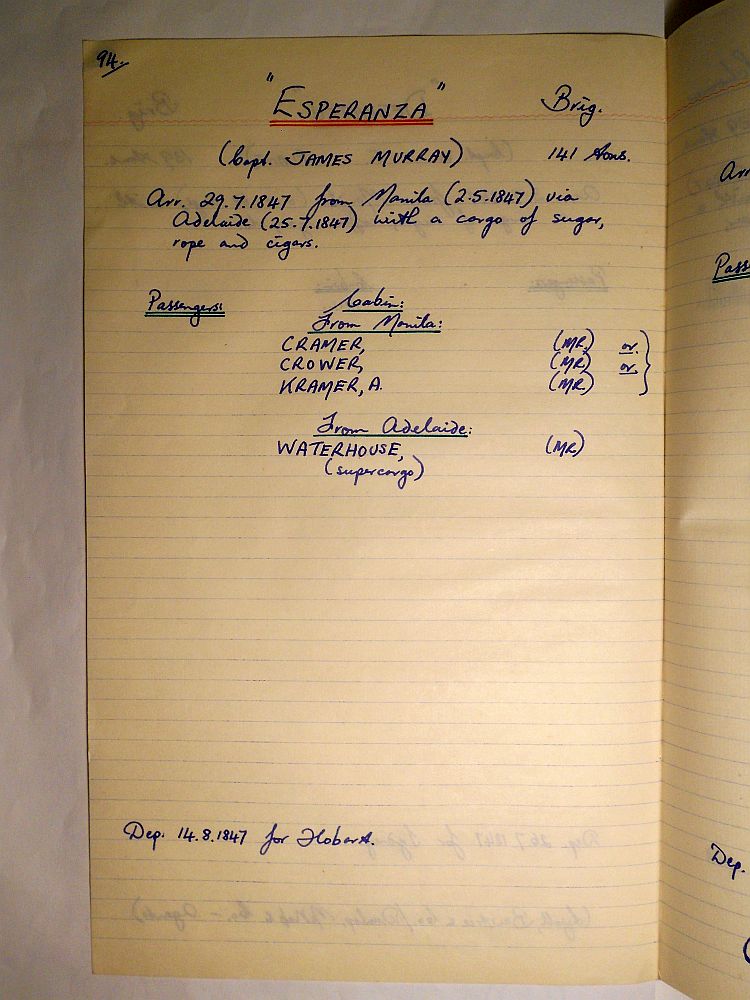 94.
"ESPERANZA" Brig.
(Capt. JAMES MURRAY) 141 tons.
Arr. 29.7.1847 from Manila (2.5.1847) via
Adelaide (25.7.1847) with a cargo of sugar,
rope and cigars.
Passengers: Cabin:
From Manila:
CRAMER, (MR) or.
CROWER, (MR) or.
KRAMER, A. (MR)
From Adelaide:
WATERHOUSE, (MR)
(supercargo)
Dep. 14.8.1847 for Hobart.
Arr
Pass
Dep.